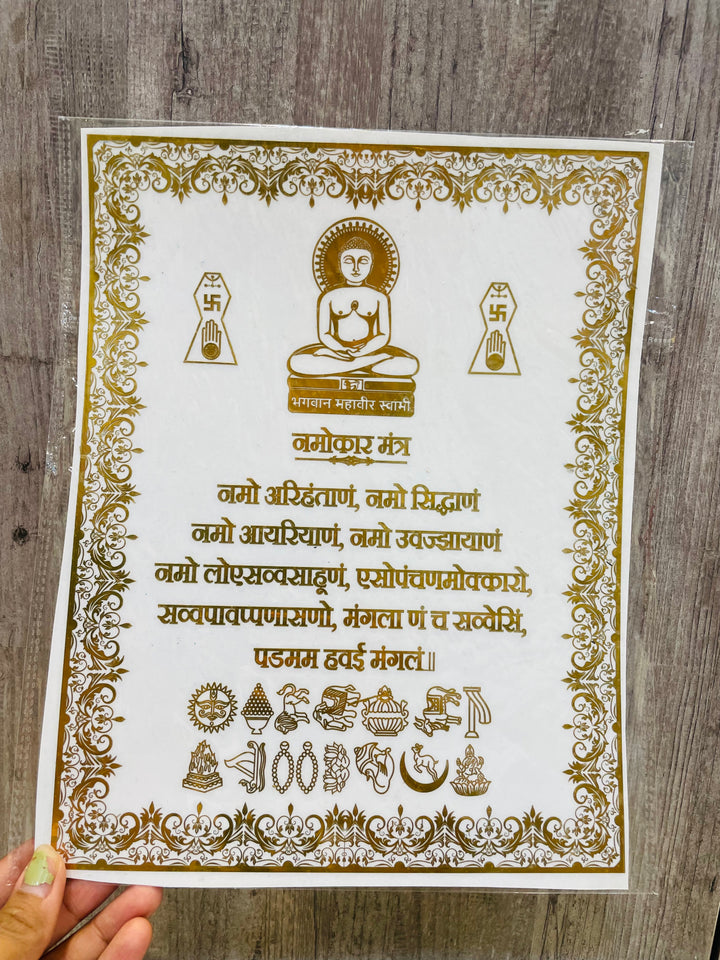 भगवान महावीर स्वामी
नमोकार मंत्र
नमो अरिहंताणं, नमो सिद्धाणं
नमो आयरियाणं, नमो उवज्झायाणं
नमो लोएसव्वसाहूणं, एसोपंचणमोक्कारो,
सव्वपावप्पणासणो, मंगला णं च सव्वेसिं,
पडमम हवई मंगलं॥